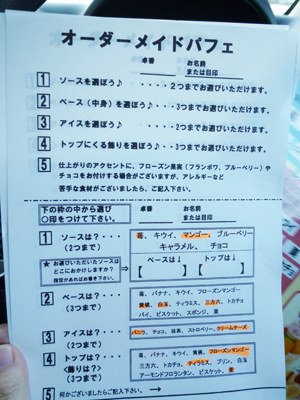 オーダーメイドパフェ
卓番　お名前
または目印
1 ソースを選ぼう♪ ・・・・・2つまでお選びいただけます。
2 ベース(中身)を選ぼう♪・・・3つまでお選びいただけます。
3 アイスを選ぼう♪ ・・・・・2つまでお選びいただけます。
4 トップにくる飾りを選ぼう♪・・3つまでお選びいただけます。
5 仕上がりのアクセントに、フローズン果実(フランボワ、ブルーベリー)や
チョコをお付けする場合がございますが、アレルギーなど
苦手な食材がございましたら、ご記入下さい。
下の枠の中から選び
○印をつけて下さい。
卓番　お名前
または目印
1 ソースは?・・・
(2つまで)
苺、キウイ、マンゴー、ブルーベリー
キャラメル、チョコ
★お選びいただいたソースは
どこにおかけしますか?
指定があればお書き下さい。
ベースは↓　トップは↓
【　】【　】
2 ベースは?・・・
(3つまで)
苺、バナナ、キウイ、フローズンマンゴー
黄桃、白玉、ティラミス、三方六、トカチョ
パイ、ビスケット、スポンジ、栗
3 アイスは?・・・
(2つまで)
バニラ、チョコ、抹茶、ストロベリー、クリームチーズ
4 トップは?・・・
<飾りは?>
(3つまで)
苺、バナナ、キウイ、黄桃、フローズンマンゴー
三方六、トカチョ、ティラミス、プリン、白玉
アーモンドフロランタン、ビスケット、栗
5 何かございましたらご記入下さい。→